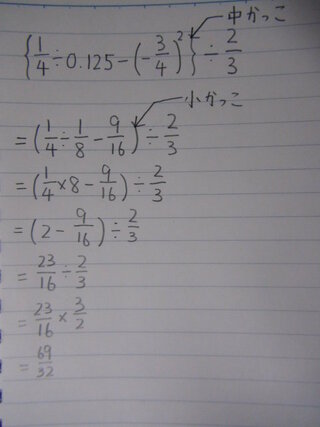 中かっこ
{1/4÷0.125-(-3/4)²}÷2/3
小かっこ
=(1/4÷1/8-9/16)÷2/3
=(1/4×8-9/16)÷2/3
=(2-9/16)÷2/3
=23/16÷2/3
=23/16×3/2
=69/32